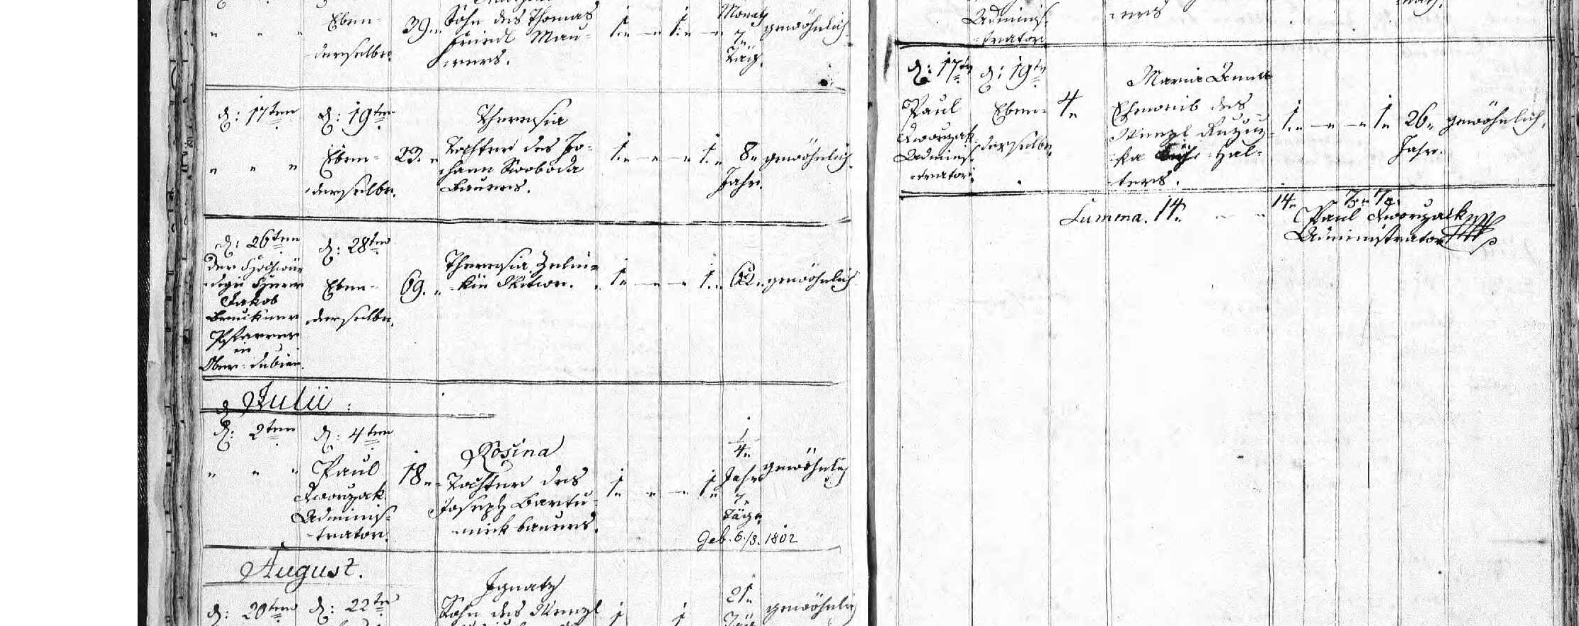 Eben-
derselbe.
39.
Sohn des Thomas
Friedl Mau-
rers.
1. 1.
Monat
7.
Täg.
gewöhnlich.
d: 17ten d: 19ten
Eben-
derselbe.
23.
Theresia
Tochter des Jo-
hann Swoboda
Bauers.
1. 1.
8.
Jahr.
gewöhnlich.
d: 26ten d: 28ten
der Hochwür-
dige Herr
Jakob
Pfarrer
in
Ober
Eben-
derselbe.
69.
Theresia
1. 1.
62. gewöhnlich
Julii
d: 2ten d: 4ten
Paul
Dworzak
Adminis-
trator.
18.
Rosina
Tochter des
Joseph Bartu-
nick bauers.
1. 1.
1/4.
Jahr
7.
Täge
gewöhnlich
Geb. 6/3. 1802
August.
d: 20ten d: 22ten
Ignatz
Sohn des Wenzl
1 1
21.
Täg
gewöhnlich
Adminis-
trator.
d: 17ten d: 19ten
Paul
Dworzak
Adminis-
trator.
Eben-
derselbe.
4.
Maria Anna
Eheweib des
Wenzl
Hal-
ters.
1. 1.
26.
Jahr.
gewöhnlich.
Summa. 14. 14. 7. 7.
Paul Dworzack
Administrator